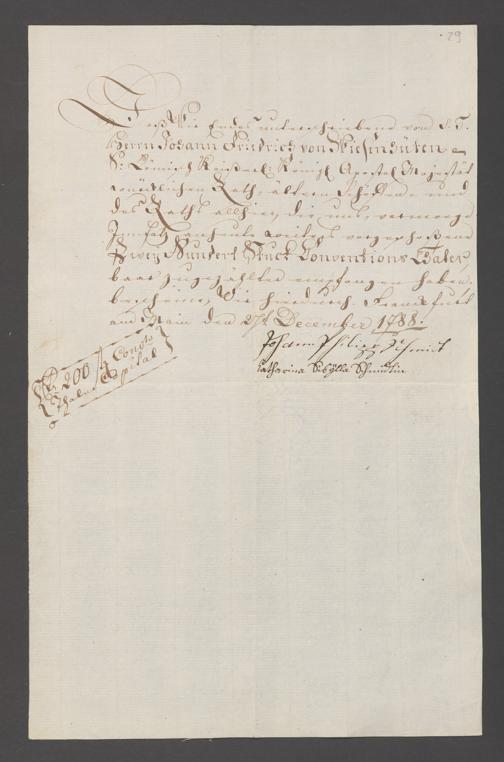 29
Daß Wir Endes unterschriebene von S. T.
Herrn Johann Friedrich von Wiesenhüten
Sr. Römisch Kayserl. Königl. Apostol. Majestät
würcklichen Rath, ältern Schöffen und
des Raths allhier, die uns, vermöge
Zwey Hundert Stück Conventions Thaler,
baar zugezählter empfangen haben
bescheinen Wir hierdurch. Franckfurt
am Mayn den 27t December 1788.
Johann Philipp Schmidt
Catharina Sibÿlla Schmidtin
200 Convts
Thaler Capital